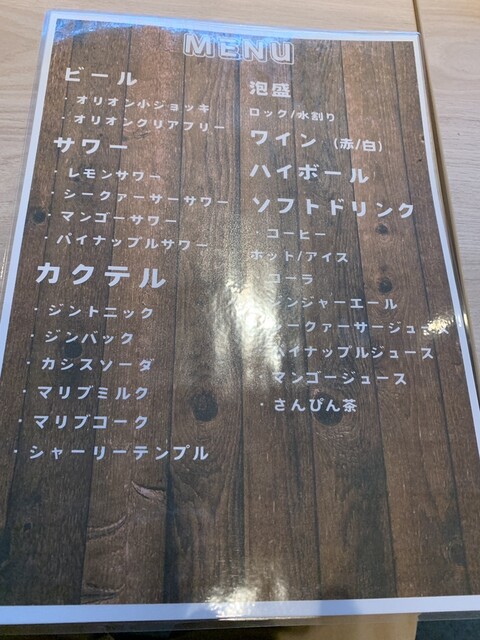 MENU
ビール
・オリオン小ジョッキ
・オリオンクリアフリー
サワー
・レモンサワー
・シークァーサーサワー
・マンゴーサワー
・パイナップルサワー
カクテル
・ジントニック
・ジンバック
・カシスソーダ
・マリブミルク
・マリブコーク
・シャーリーテンプル
泡盛
ロック/水割り
ワイン (赤/白)
ハイボール
ソフトドリンク
コーヒー
ホット/アイス
コーラ
ジンジャーエール
シークァーサージュース
パイナップルジュース
マンゴージュース
・さんぴん茶